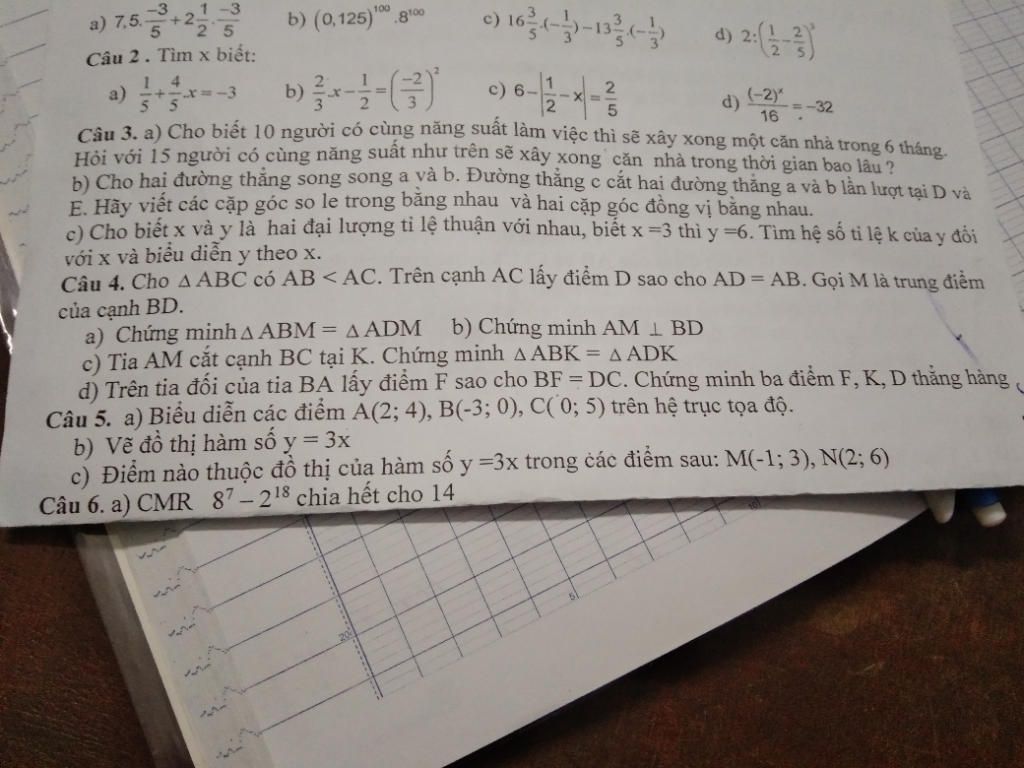 a) 7,5.\frac{-3}{5}+2\frac{1}{2}.\frac{-3}{5} b) (0,125)^{100}.8^{100} c) 16\frac{3}{5}.(-\frac{1}{3})-13\frac{3}{5}.(-\frac{1}{3}) d) 2:(\frac{1}{2}-\frac{2}{5})^{3}
Câu 2 . Tìm x biết:
a) \frac{1}{5}+\frac{4}{5}.x=-3 b) \frac{2}{3}.x-\frac{1}{2}=(\frac{-2}{3})^{2} c) 6-|\frac{1}{2}-x|=\frac{2}{5} d) \frac{(-2)^{x}}{16}=-32
Câu 3. a) Cho biết 10 người có cùng năng suất làm việc thì sẽ xây xong một căn nhà trong 6 tháng.
Hỏi với 15 người có cùng năng suất như trên sẽ xây xong căn nhà trong thời gian bao lâu ?
b) Cho hai đường thẳng song song a và b. Đường thẳng c cắt hai đường thẳng a và b lần lượt tại D và
E. Hãy viết các cặp góc so le trong bằng nhau và hai cặp góc đồng vị bằng nhau.
c) Cho biết x và y là hai đại lượng tỉ lệ thuận với nhau, biết x =3 thì y =6. Tìm hệ số tỉ lệ k của y đối
với x và biểu diễn y theo x.
Câu 4. Cho Δ ABC có AB < AC. Trên cạnh AC lấy điểm D sao cho AD = AB. Gọi M là trung điểm
của cạnh BD.
a) Chứng minh Δ ABM = Δ ADM b) Chứng minh AM ⊥ BD
c) Tia AM cắt cạnh BC tại K. Chứng minh Δ ABK = Δ ADK
d) Trên tia đối của tia BA lấy điểm F sao cho BF = DC. Chứng minh ba điểm F, K, D thẳng hàng
Câu 5. a) Biểu diễn các điểm A(2; 4), B(-3; 0), C( 0; 5) trên hệ trục tọa độ.
b) Vẽ đồ thị hàm số y = 3x
c) Điểm nào thuộc đồ thị của hàm số y =3x trong các điểm sau: M(-1; 3), N(2; 6)
Câu 6. a) CMR 8^{7} – 2^{18} chia hết cho 14
5
20